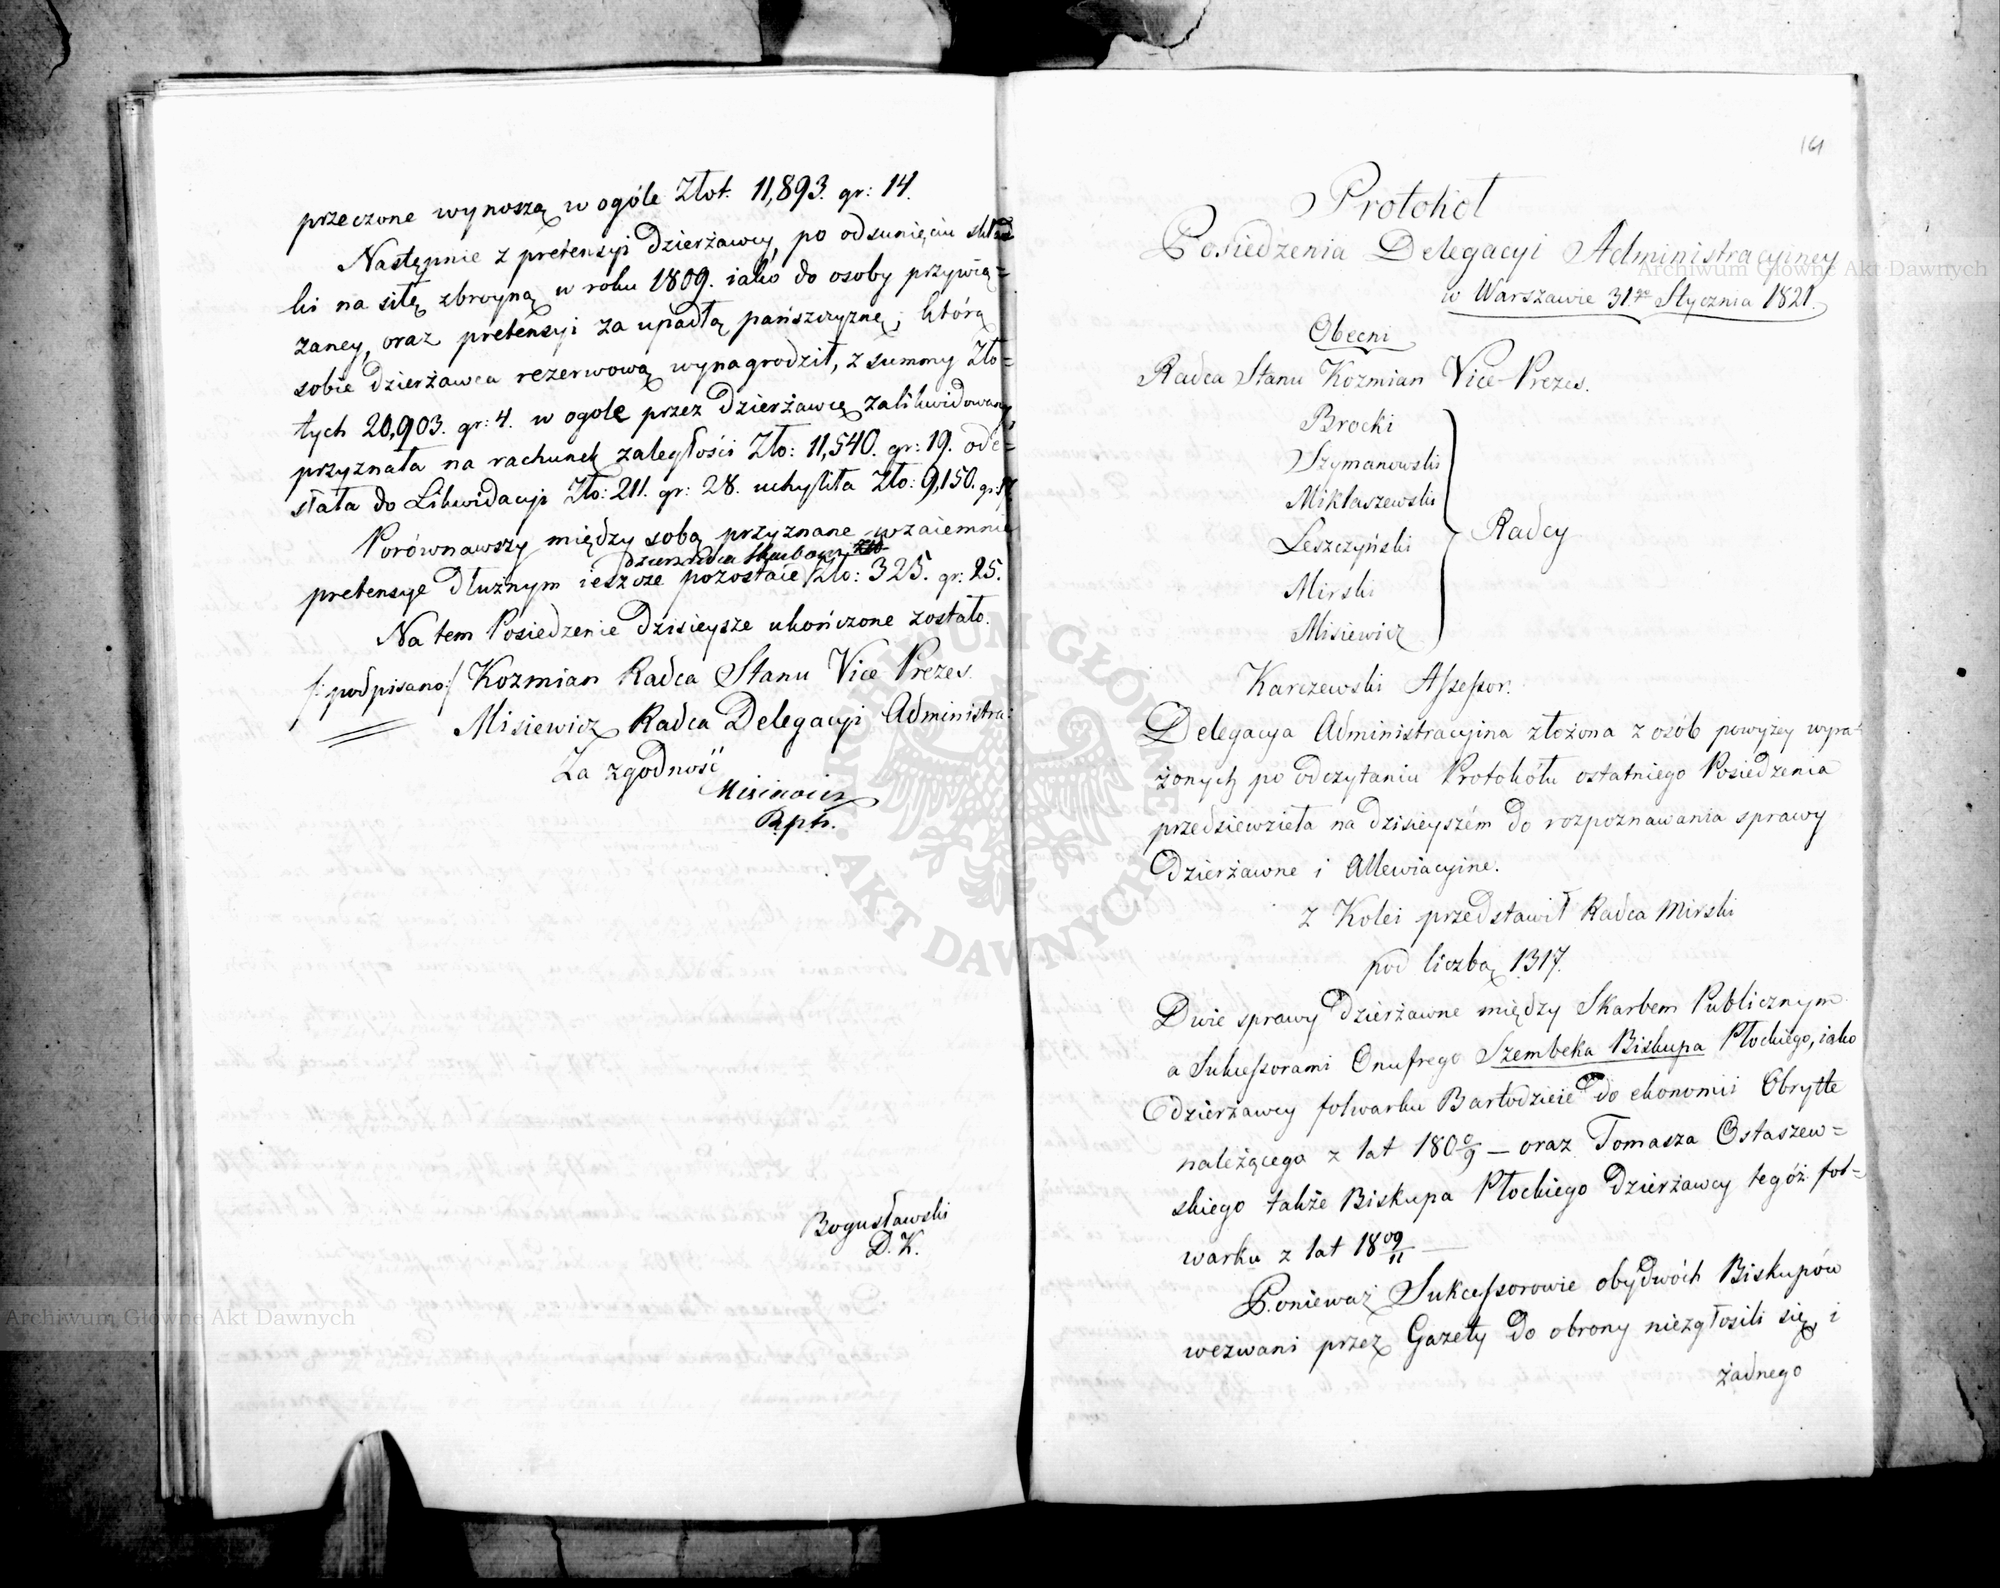 przeczone wynoszą w ogóle Złot. 11,893. gr: 14.
Następnie z pretensyi Dzierżawcy, po odsunięciu skład
ki na siłę zbroyną w roku 1809. iako do osoby przywią=
zaney, oraz pretensyi za upadłą pańszczyznę, którą
sobie dzierżawca rezerwową wynagrodził, z summy Zło=
tych 20,903. gr: 4. w ogole przez dzierżawcę zalikwidowany,
przyznała na rachunek zaległości Zło: 11,540. gr: 19. ode=
słała do Likwidacyi Zło: 211. gr: 28. uchyliła Zło: 9,150. gr: 17.
Porównawszy między sobą przyznane wzaiemnie
Dzierżawca Skarbowi
pretensye dłużnym ieszcze pozostaie Zło: 325. gr: 25.
Na tem Posiedzenie dzisieysze ukończone zostało.
/: podpisano:/ Kozmian Radca Stanu Vice Prezes.
Misiewicz Radca Delegacyi Administra:
Za zgodność
Misiewicz
R.p.h.
Bogusławski
D. K.
161
Protokoł
Posiedzenia Delegacyi Administracyiney
w Warszawie 31go Stycznia 1821.
Obecni
Radca Stanu Kozmian Vice-Prezes.
Brocki
Szymanowski
Mikłaszewski
Leszczyński
Mirski
Misiewicz
Radcy
Karczewski Assessor.
Delegacya Administracyina złożona z osób powyżey wyra-
żonych po odczytaniu Protokółu ostatniego Posiedzenia
przedsiewzieła na dzisieyszém do rozpoznawania sprawy
Dzierżawne i Allewiacyine.
Z Kolei przedstawił Radca Mirski
pod liczbą 1317.
Dwie sprawy dzierżawne między Skarbem Publicznym
a Sukcessorami Onufrego Szembeka Biskupa Płockiego, iako
dzierżawcy folwarku Bartodzieie do ekonomii Obrytte
należącego z lat 180 8/9 — oraz Tomasza Ostaszew=
skiego także Biskupa Płockiego Dzierżawcy tegóż fol=
warku z lat 18 09/11 —
Ponieważ Sukcessorowie obydwóch Biskupów
wezwani przez Gazety do obrony niezgłosili się, i
żadnego
Archiwum Główne Akt Dawnych
Archiwum Główne Akt Dawnych
ARCHIWUM GŁÓWNE AKT DAWNYCH